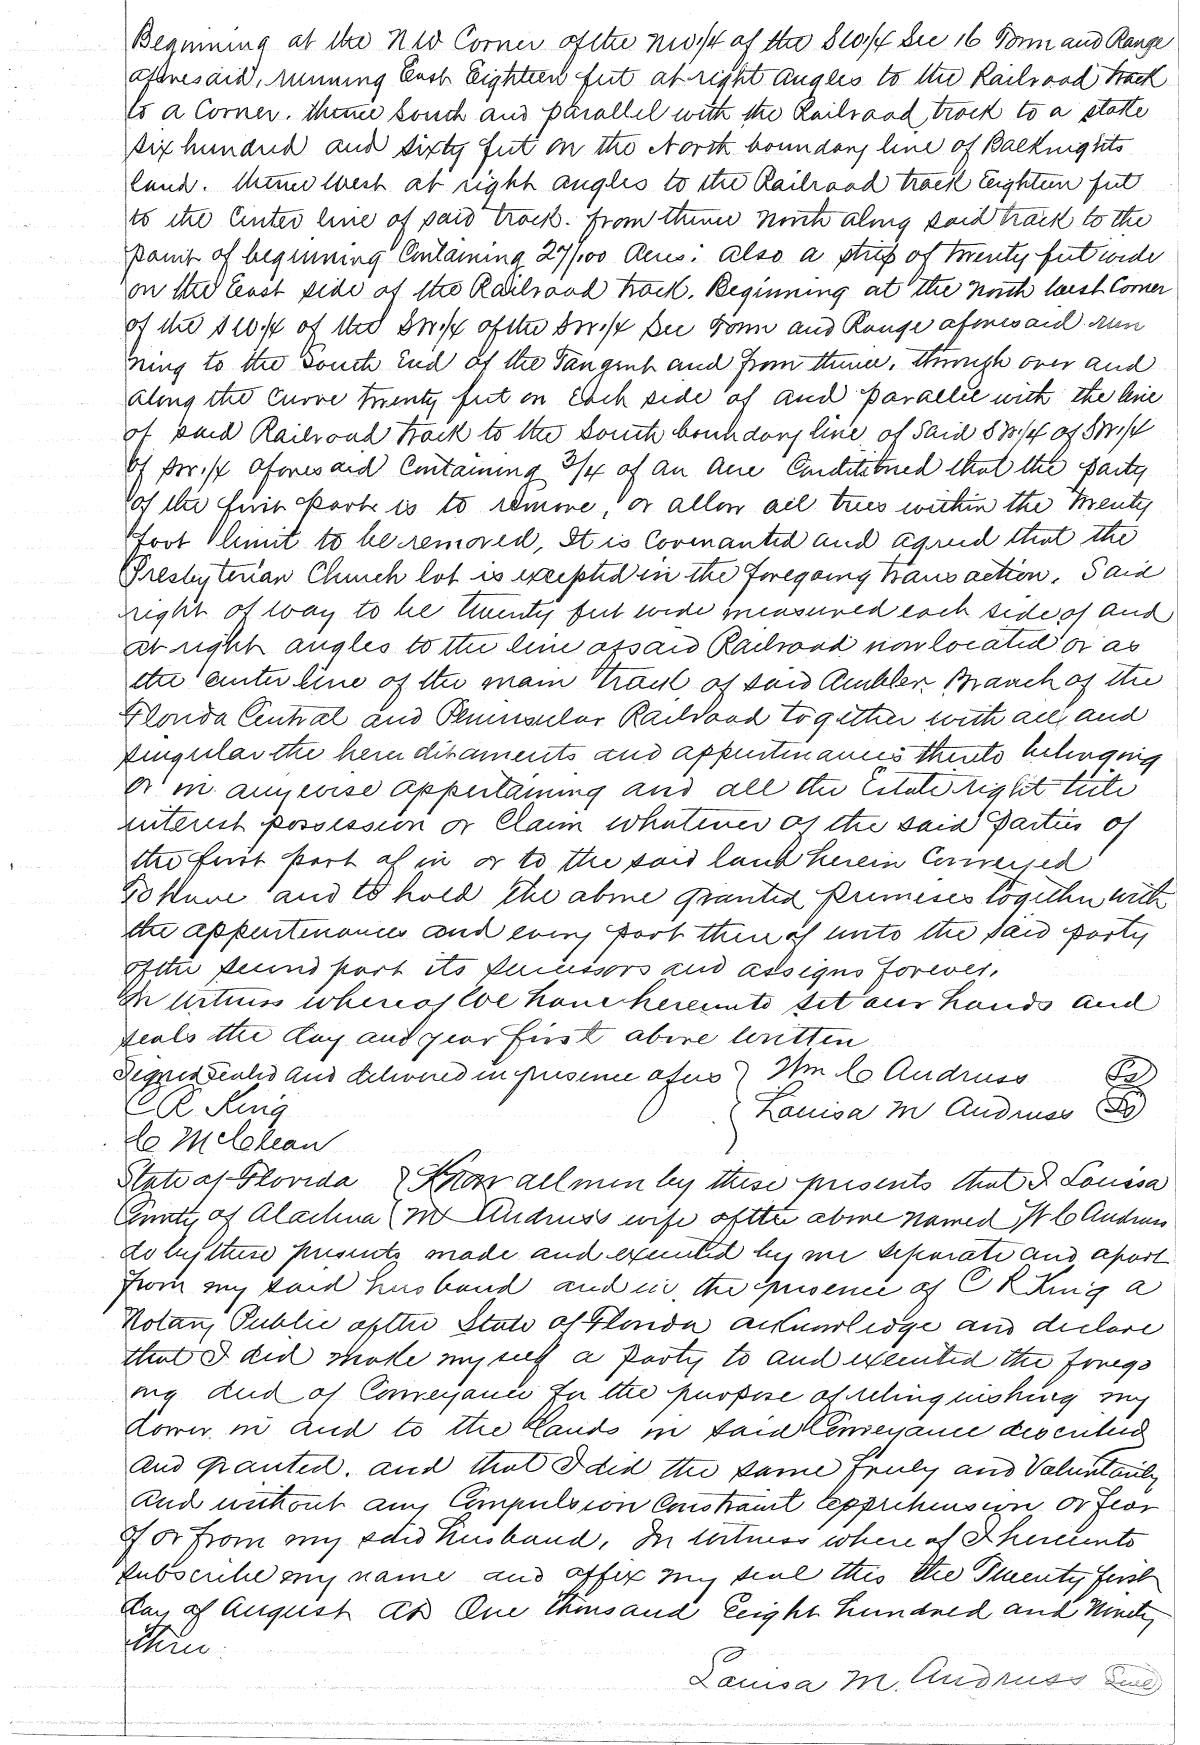 Beginning at the NW Corner of the NW1/4 of the SW1/4 Sec 16 Town and Range
aforesaid, running East Eighteen feet at right angles to the Railroad track
to a Corner. thence South and parallel with the Railroad track to a stake
six hundred and sixty feet on the North boundary line of Balknights
land. thence West at right angles to the Railroad track Eighteen feet
to the Center line of said track. from thence North along said track to the
point of beginning Containing 27/100 Acres: also a strip of twenty feet wide
on the East side of the Railroad track. Beginning at the North West Corner
of the SW1/4 of the SW1/4 of the SW1/4 Sec Town and Range aforesaid run
ning to the South End of the Tangent and from thence, through over and
along the Curve twenty feet on Each side of and parallel with the line
of said Railroad track to the South boundary line of Said SW1/4 of SW1/4
of SW1/4 aforesaid Containing 3/4 of an Acre Conditioned that the party
of the first part is to remove, or allow all trees within the twenty
foot limit to be removed, It is Covenanted and agreed that the
Presbyterian Church lot is excepted in the foregoing transaction. Said
right of way to be twenty feet wide measured each side of and
at right angles to the line of said Railroad now located or as
the center line of the main track of said Ambler Branch of the
Florida Central and Peninsular Railroad together with all and
singular the hereditaments and appurtenances thereto belonging
or in anywise appertaining and all the Estate right title
interest possession or Claim whatever of the said parties of
the first part of in or to the said land herein Conveyed
To Have and to hold the above granted premises together with
the appurtenances and every part thereof unto the said party
of the second part its successors and assigns forever.
In Witness whereof We have hereunto set our hands and
seals the day and year first above written
Signed Sealed and delivered in presence of us } Wm C Andruss Ls
C R King { Louisa M Andruss Ls
C McClean
State of Florida } Know all men by these presents that I Louisa
County of Alachua { M Andruss wife of the above named W C Andruss
do by these presents made and executed by me separate and apart
from my said husband and in the presence of C R King a
Notary Public of the State of Florida acknowledge and declare
that I did make myself a party to and executed the forego
ing deed of Conveyance for the purpose of relinquishing my
dower in and to the lands in said Conveyance described
and granted. and that I did the same freely and Voluntarily
and without any Compulsion Constraint apprehension or fear
of or from my said husband, In Witness where of I hereunto
subscribe my name and affix my seal this the Twenty first
day of August AD One thousand Eight hundred and Ninety
three
Louisa M. Andruss Seal